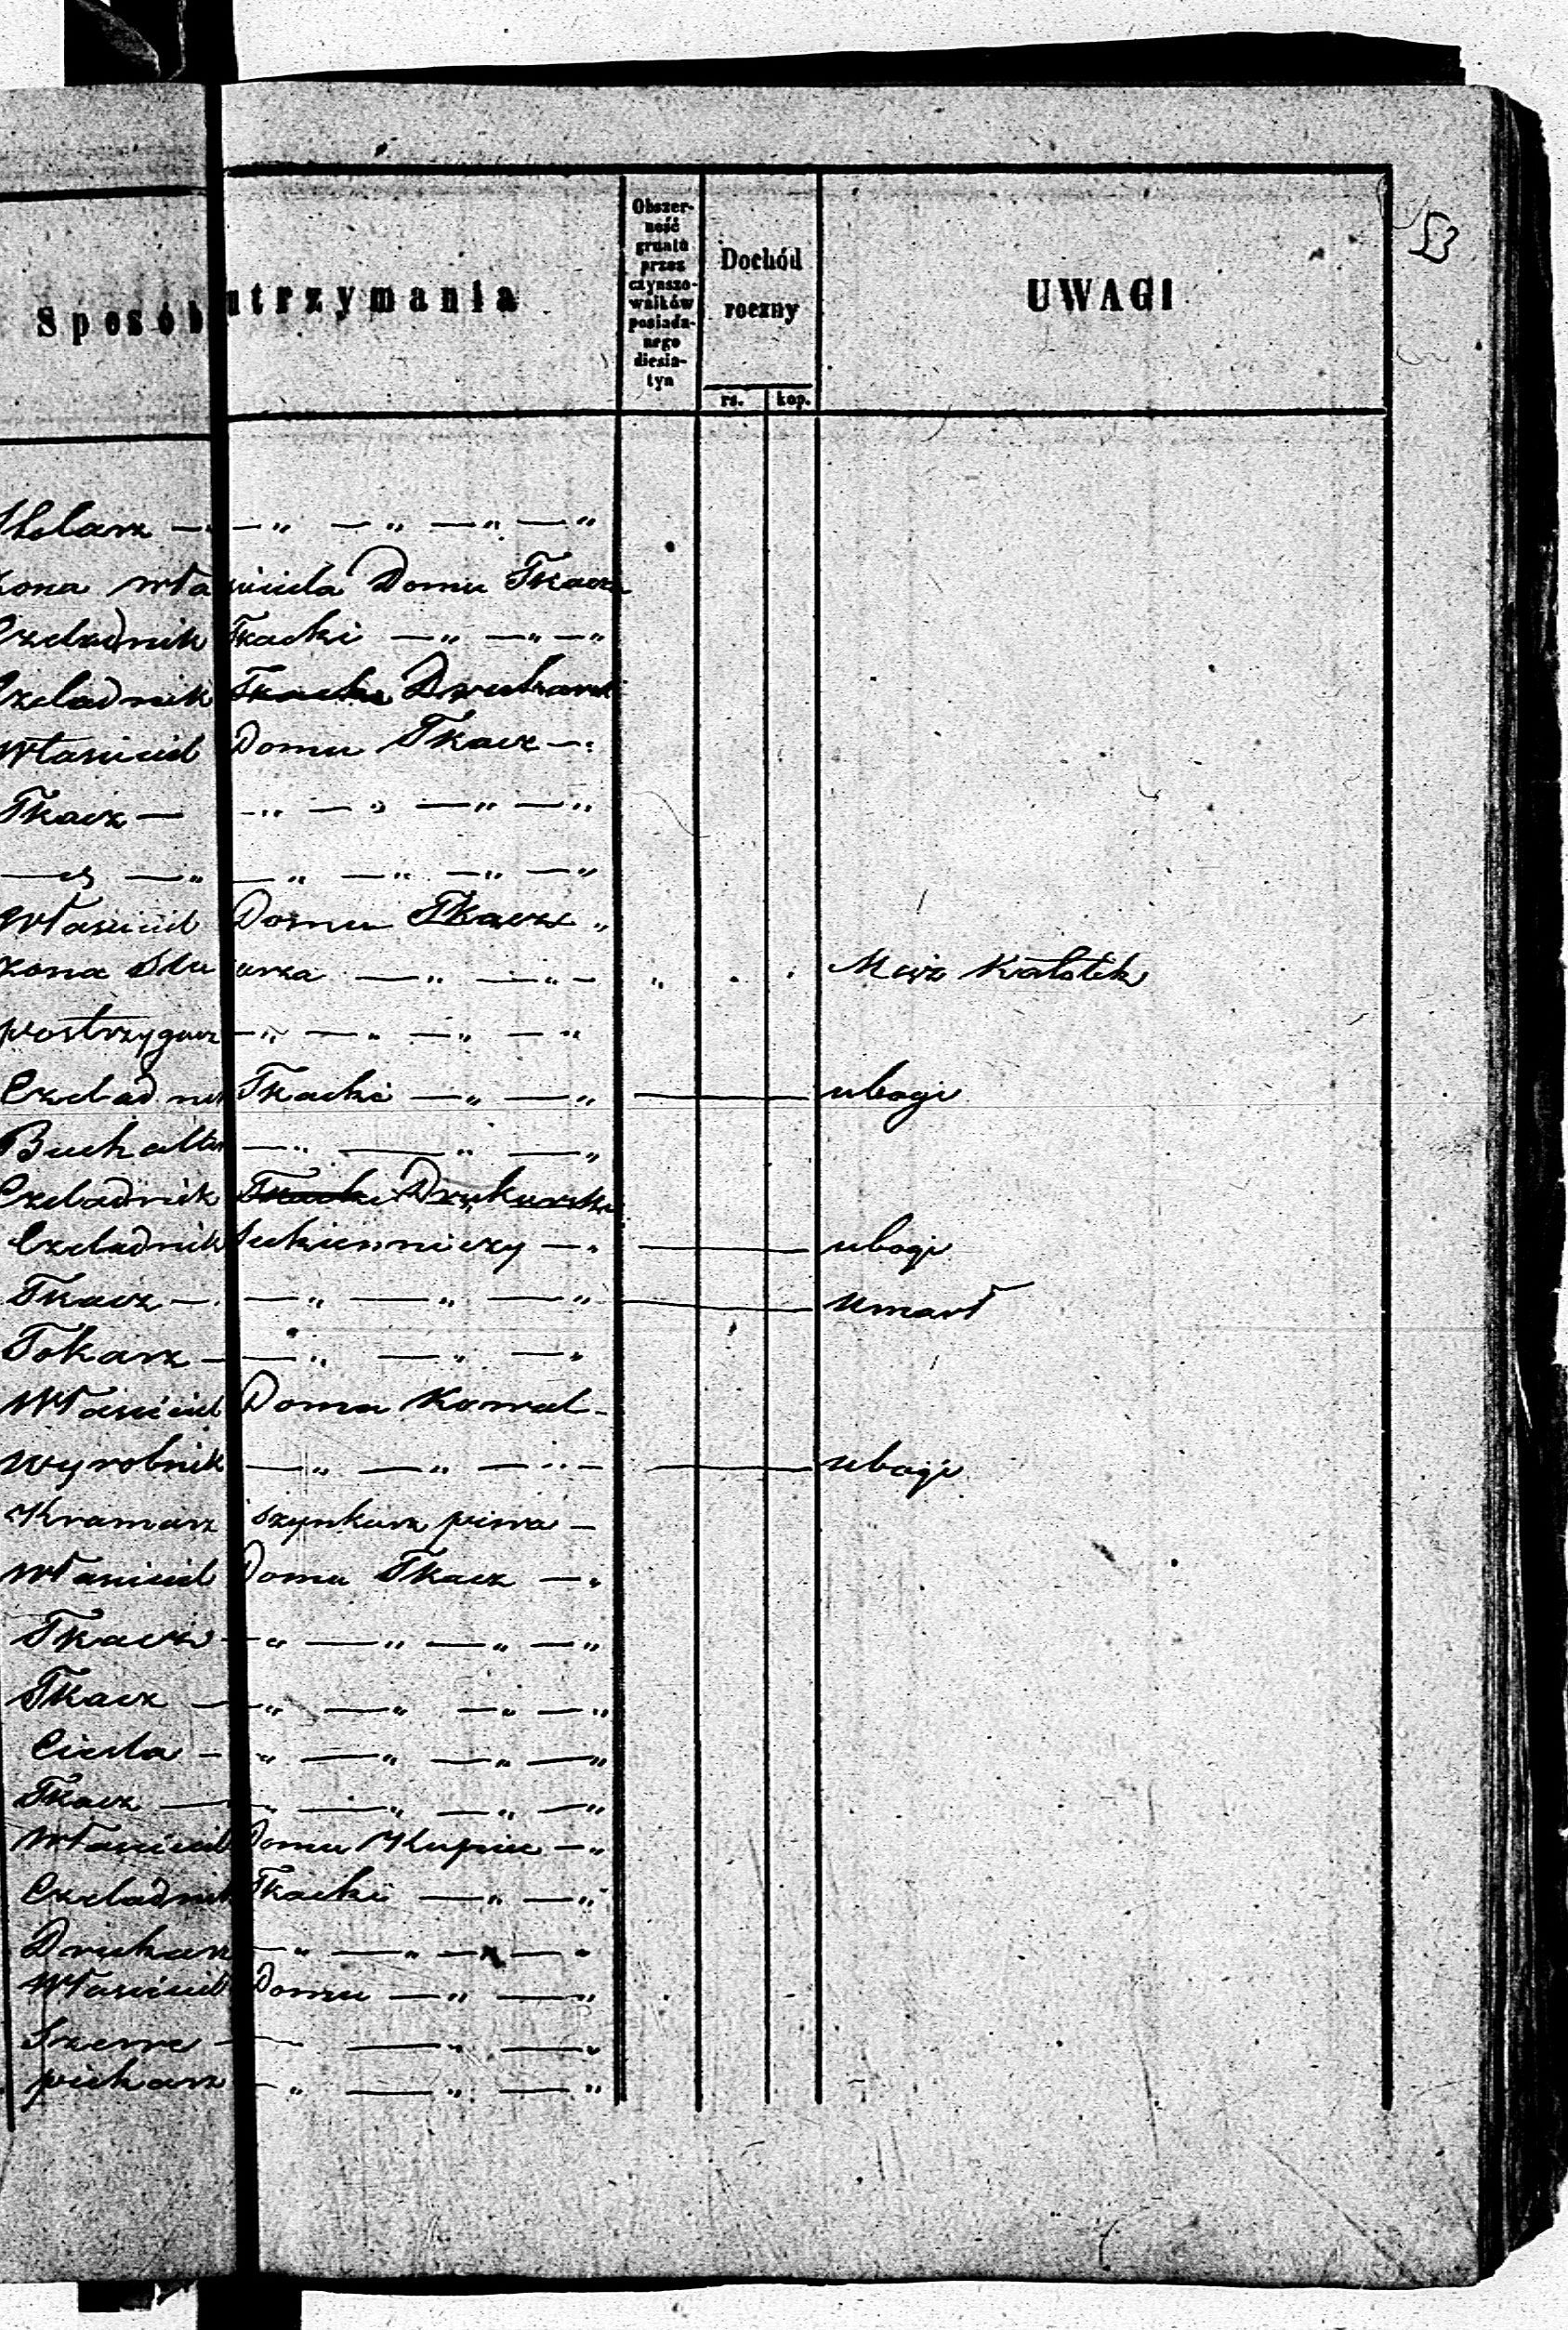 53
Sposób utrzymania
Obszer-
ność
gruntu
przez
czynszo-
wników
posiada-
nego
diesia-
tyn
Dochód
roczny
rs. kop.
UWAGI
Stolarz — „ — „ — „ — „
żona właściciela Domu Tkacza
Czeladnik Tkacki — „ — „ — „
Czeladnik Tkacki Drukarski
Właściciel Domu Tkacz — „
Tkacz — — „ — „ — „ — „
— „ — „ — „ — „ — „ — „
Właściciel Domu Tkacz „
żona — „ — „ — „ . . Mąż Katolik
postrzygacz — „ — „ — „ — „
Czeladnik Tkacki — „ — „ ubogi
Buchalter — „ — „ — „
Czeladnik Tkacki Drukarski
Czeladnik sukienniczy — „ ubogi
Tkacz — „ — „ — „ — „ umarł
Tokarz — — „ — „ — „
Właściciel Domu Kowal —
wyrobnik — „ — „ — „ — ubogi
Kramarz i szynkarz piwa —
Właściciel Domu Tkacz — „
Tkacz — „ — „ — „ — „
Tkacz — „ — „ — „ — „
Cieśla — „ — „ — „ — „
Tkacz — „ — „ — „ — „
Właściciel Domu Kupiec — „
Czeladnik Tkacki — „ — „
Drukarz — „ — „ — „ — „
Właściciel Domu — „ — „
Szewc — — „ — „
piekarz — „ — „ — „